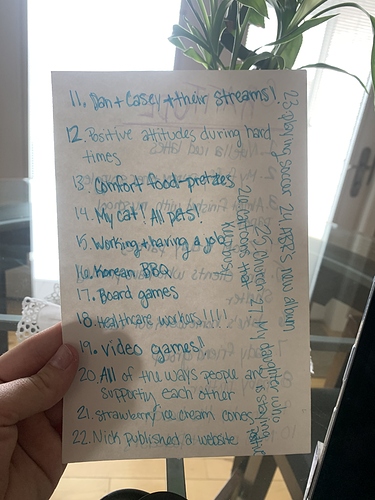 11. Dan + Casey + their streams!
12. Positive attitudes during hard
times
13. Comfort food-pretzles
14. My cat! All pets!
15. Working + having a job
16. Korean BBQ
17. Board games
18. Healthcare workers!!!!
19. video games!!
20. All of the ways people are
supporting each other
21. strawberry ice cream cones
22. Nick published a website
23. playing soccer 24. AJR's new album
25. Chivron 27. My daughter who
is staying
26. Cartoons that